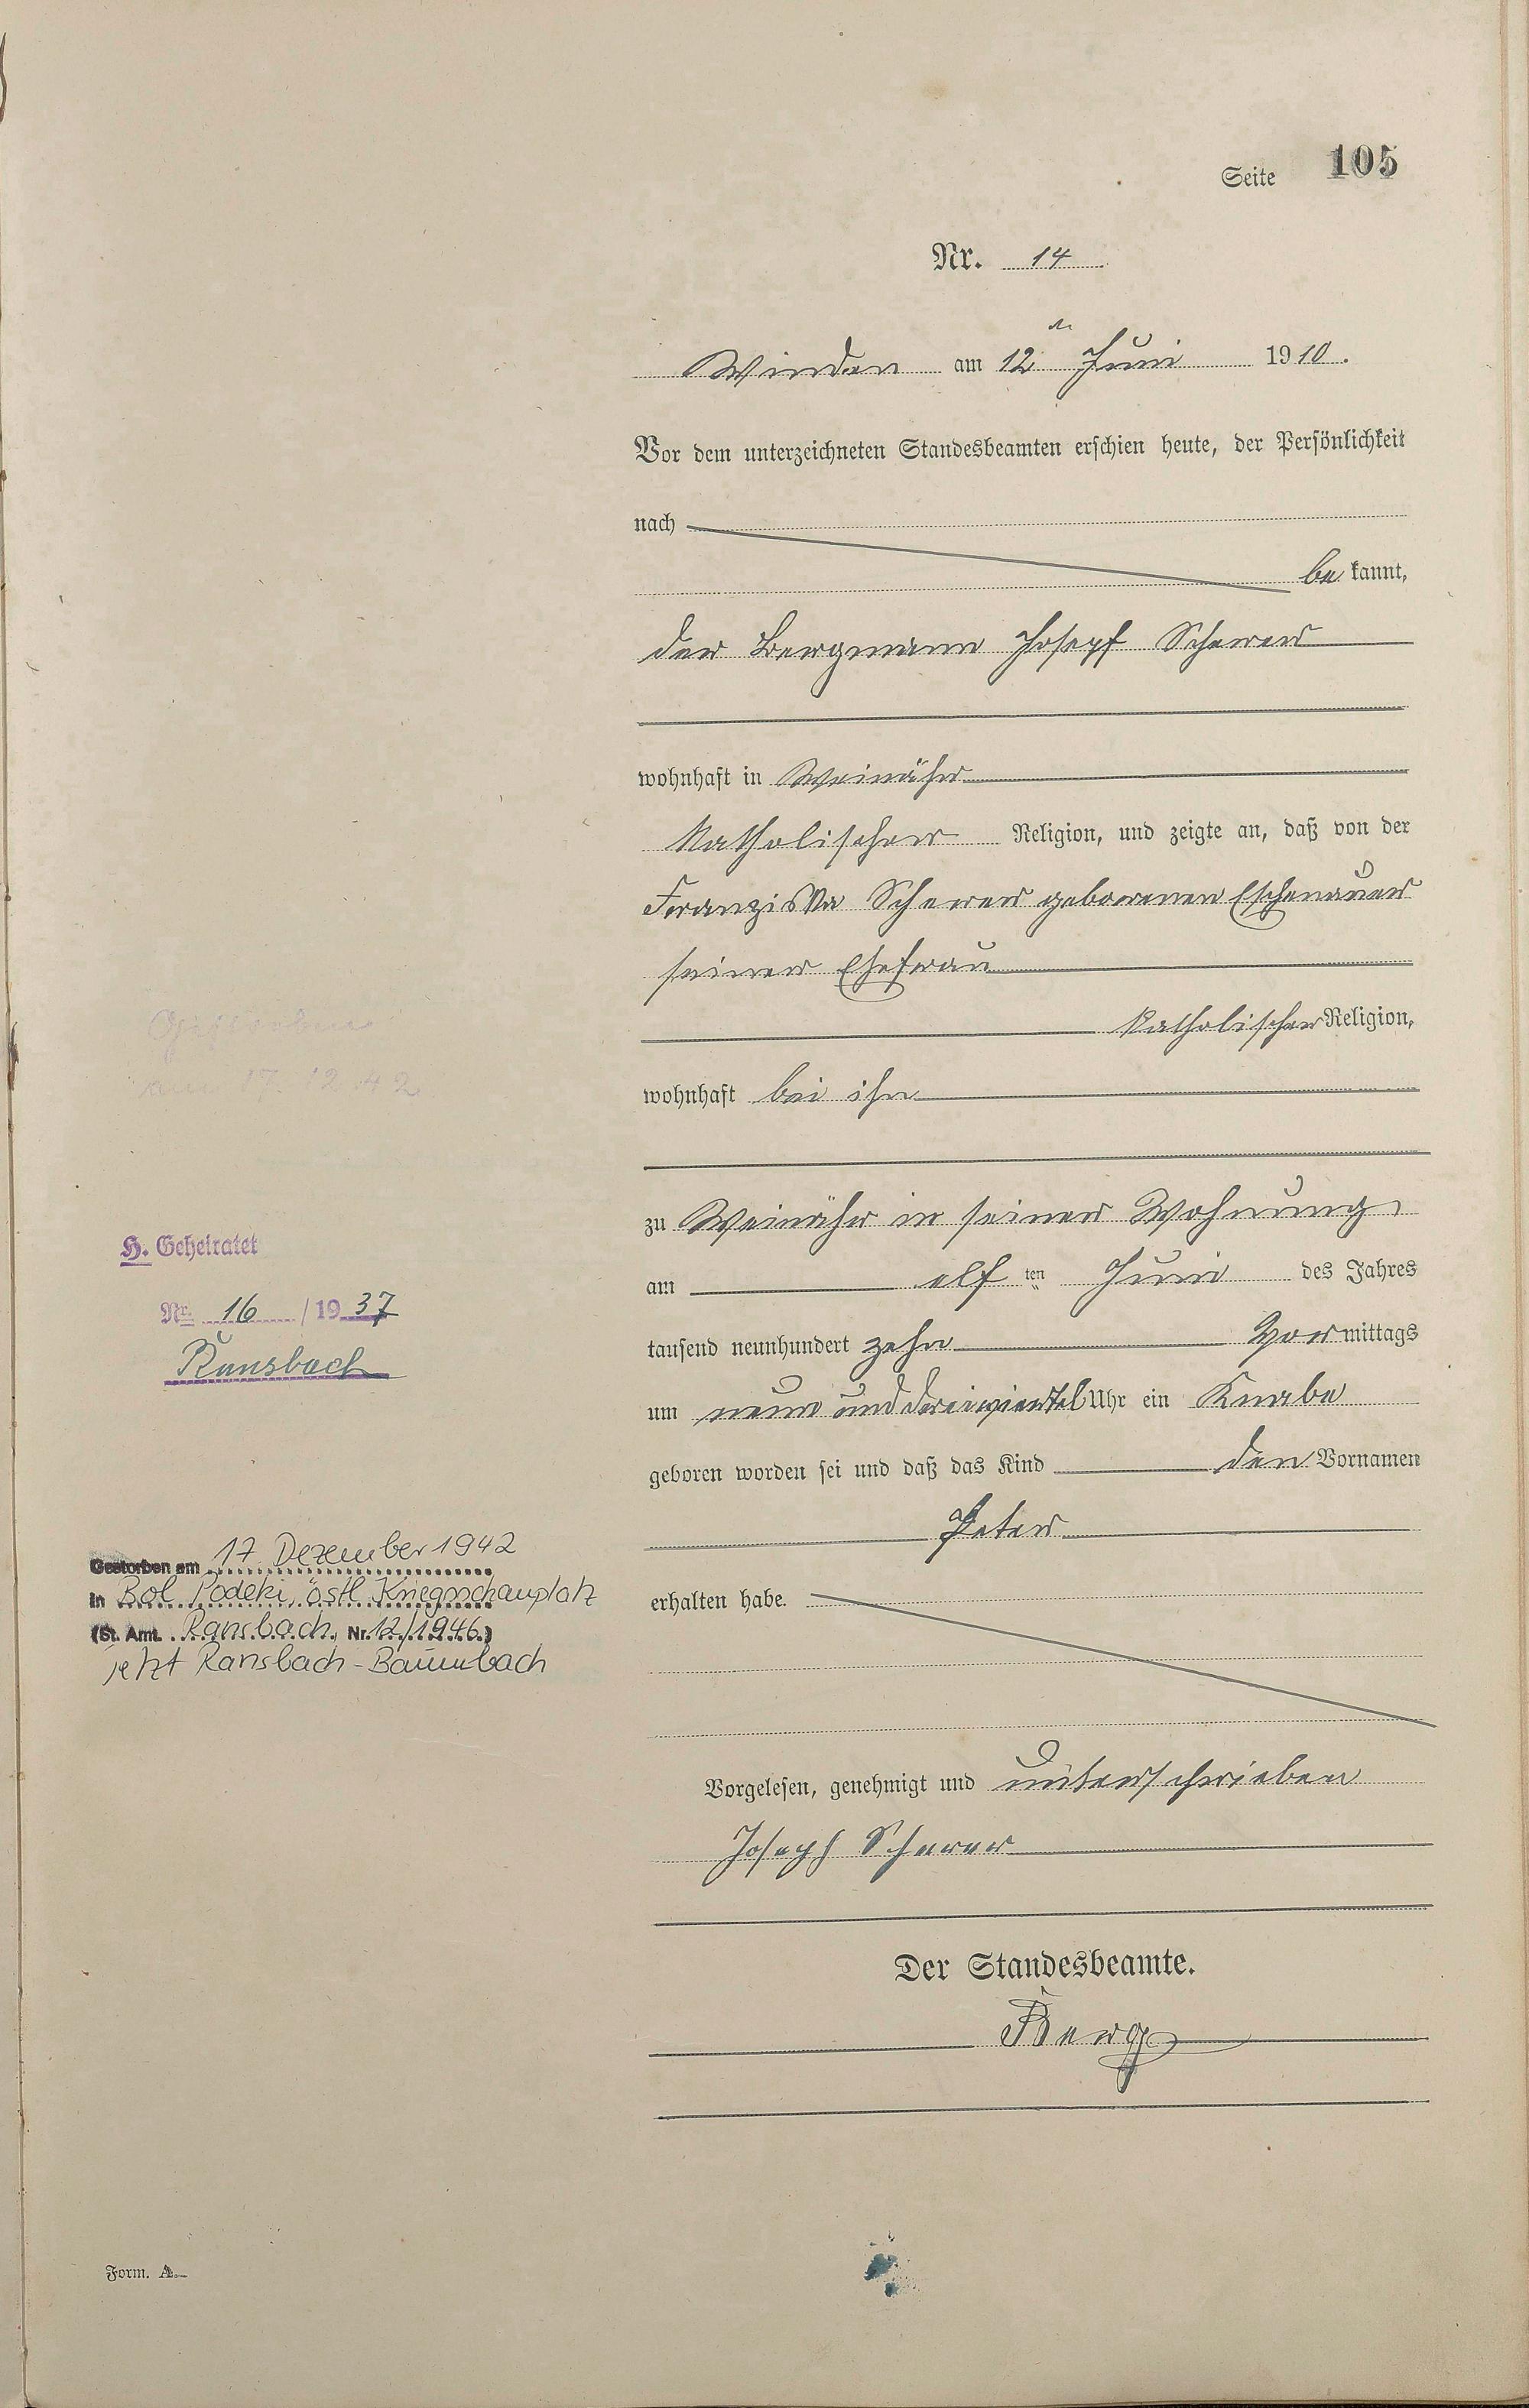 Seite 105
Nr. 14
Winden am 12ten Juni 1910.
Vor dem unterzeichneten Standesbeamten erschien heute, der Persönlichkeit
nach
be kannt,
der Bergmann Josepf Scherer
wohnhaft in Weinähr
katholischer Religion, und zeigte an, daß von der
Franziska Scherer geborenen Eschenauer
seiner Ehefrau
katholischer Religion,
wohnhaft bei ihm
zu Weinähr in seiner Wohnung
am elf ten Juni des Jahres
tausend neunhundert zehn Vor mittags
um neun und dreiviertel Uhr ein Knabe
geboren worden sei und daß das Kind den Vornamen
Peter
erhalten habe.
Vorgelesen, genehmigt und unterschrieben
Joseph Scherer
Der Standesbeamte.
Berg
Gestorben
am 17.12.42
H. Geheiratet
Nr. 16 / 1937
Ransbach
Gestorben am 17. Dezember 1942
in Bol. Podeki, östl. Kriegsschauplatz
(St. Amt. Ransbach, Nr. 12/1946.)
jetzt Ransbach-Baumbach
Form. A.